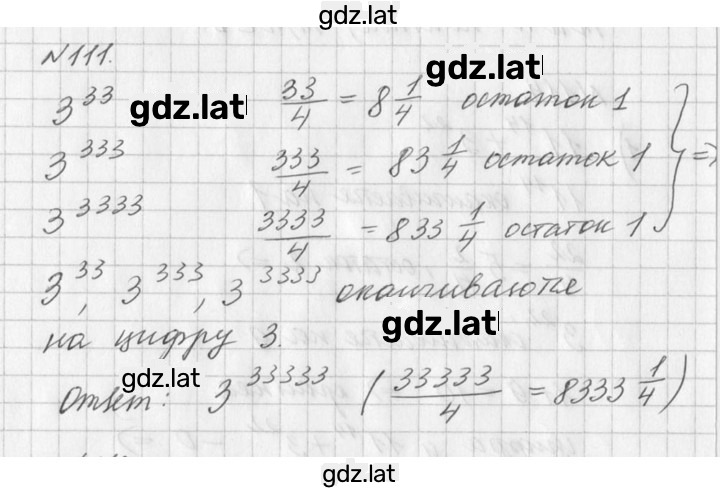 gdz.lat
№111.
gdz.lat
3^33 gdz.lat 33/4 = 8 1/4 остаток 1
3^333 333/4 = 83 1/4 остаток 1 } ⇒
3^3333 3333/4 = 833 1/4 остаток 1
3^33, 3^333, 3^3333 оканчиваются
на цифру 3. gdz.lat
gdz.lat
Ответ: 3^33333 (33333/4 = 8333 1/4)
gdz.lat